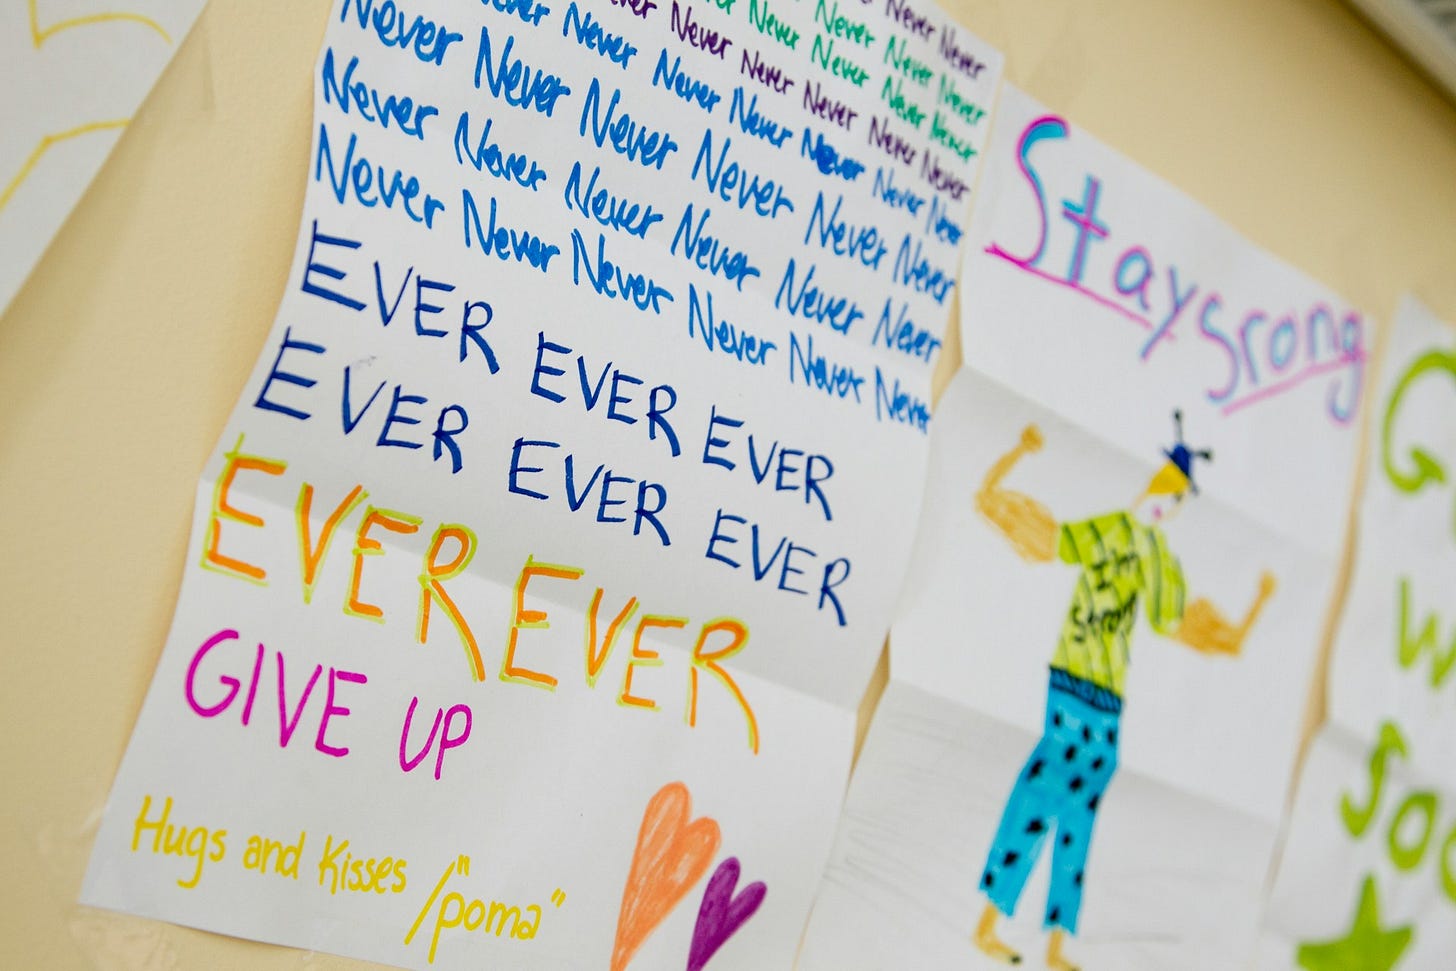 Never Never Never
Never Never Never
Never Never Never Never Never
Never Never Never Never Never Never
Never Never Never Never Never Never Never
Never Never Never Never Never Never
Never Never Never Never Never Never
Never Never Never Never Never Never
EVER EVER EVER
EVER EVER EVER
EVER EVER
GIVE UP
Hugs and Kisses
/"poma"
Stay Srong
I'm
strong